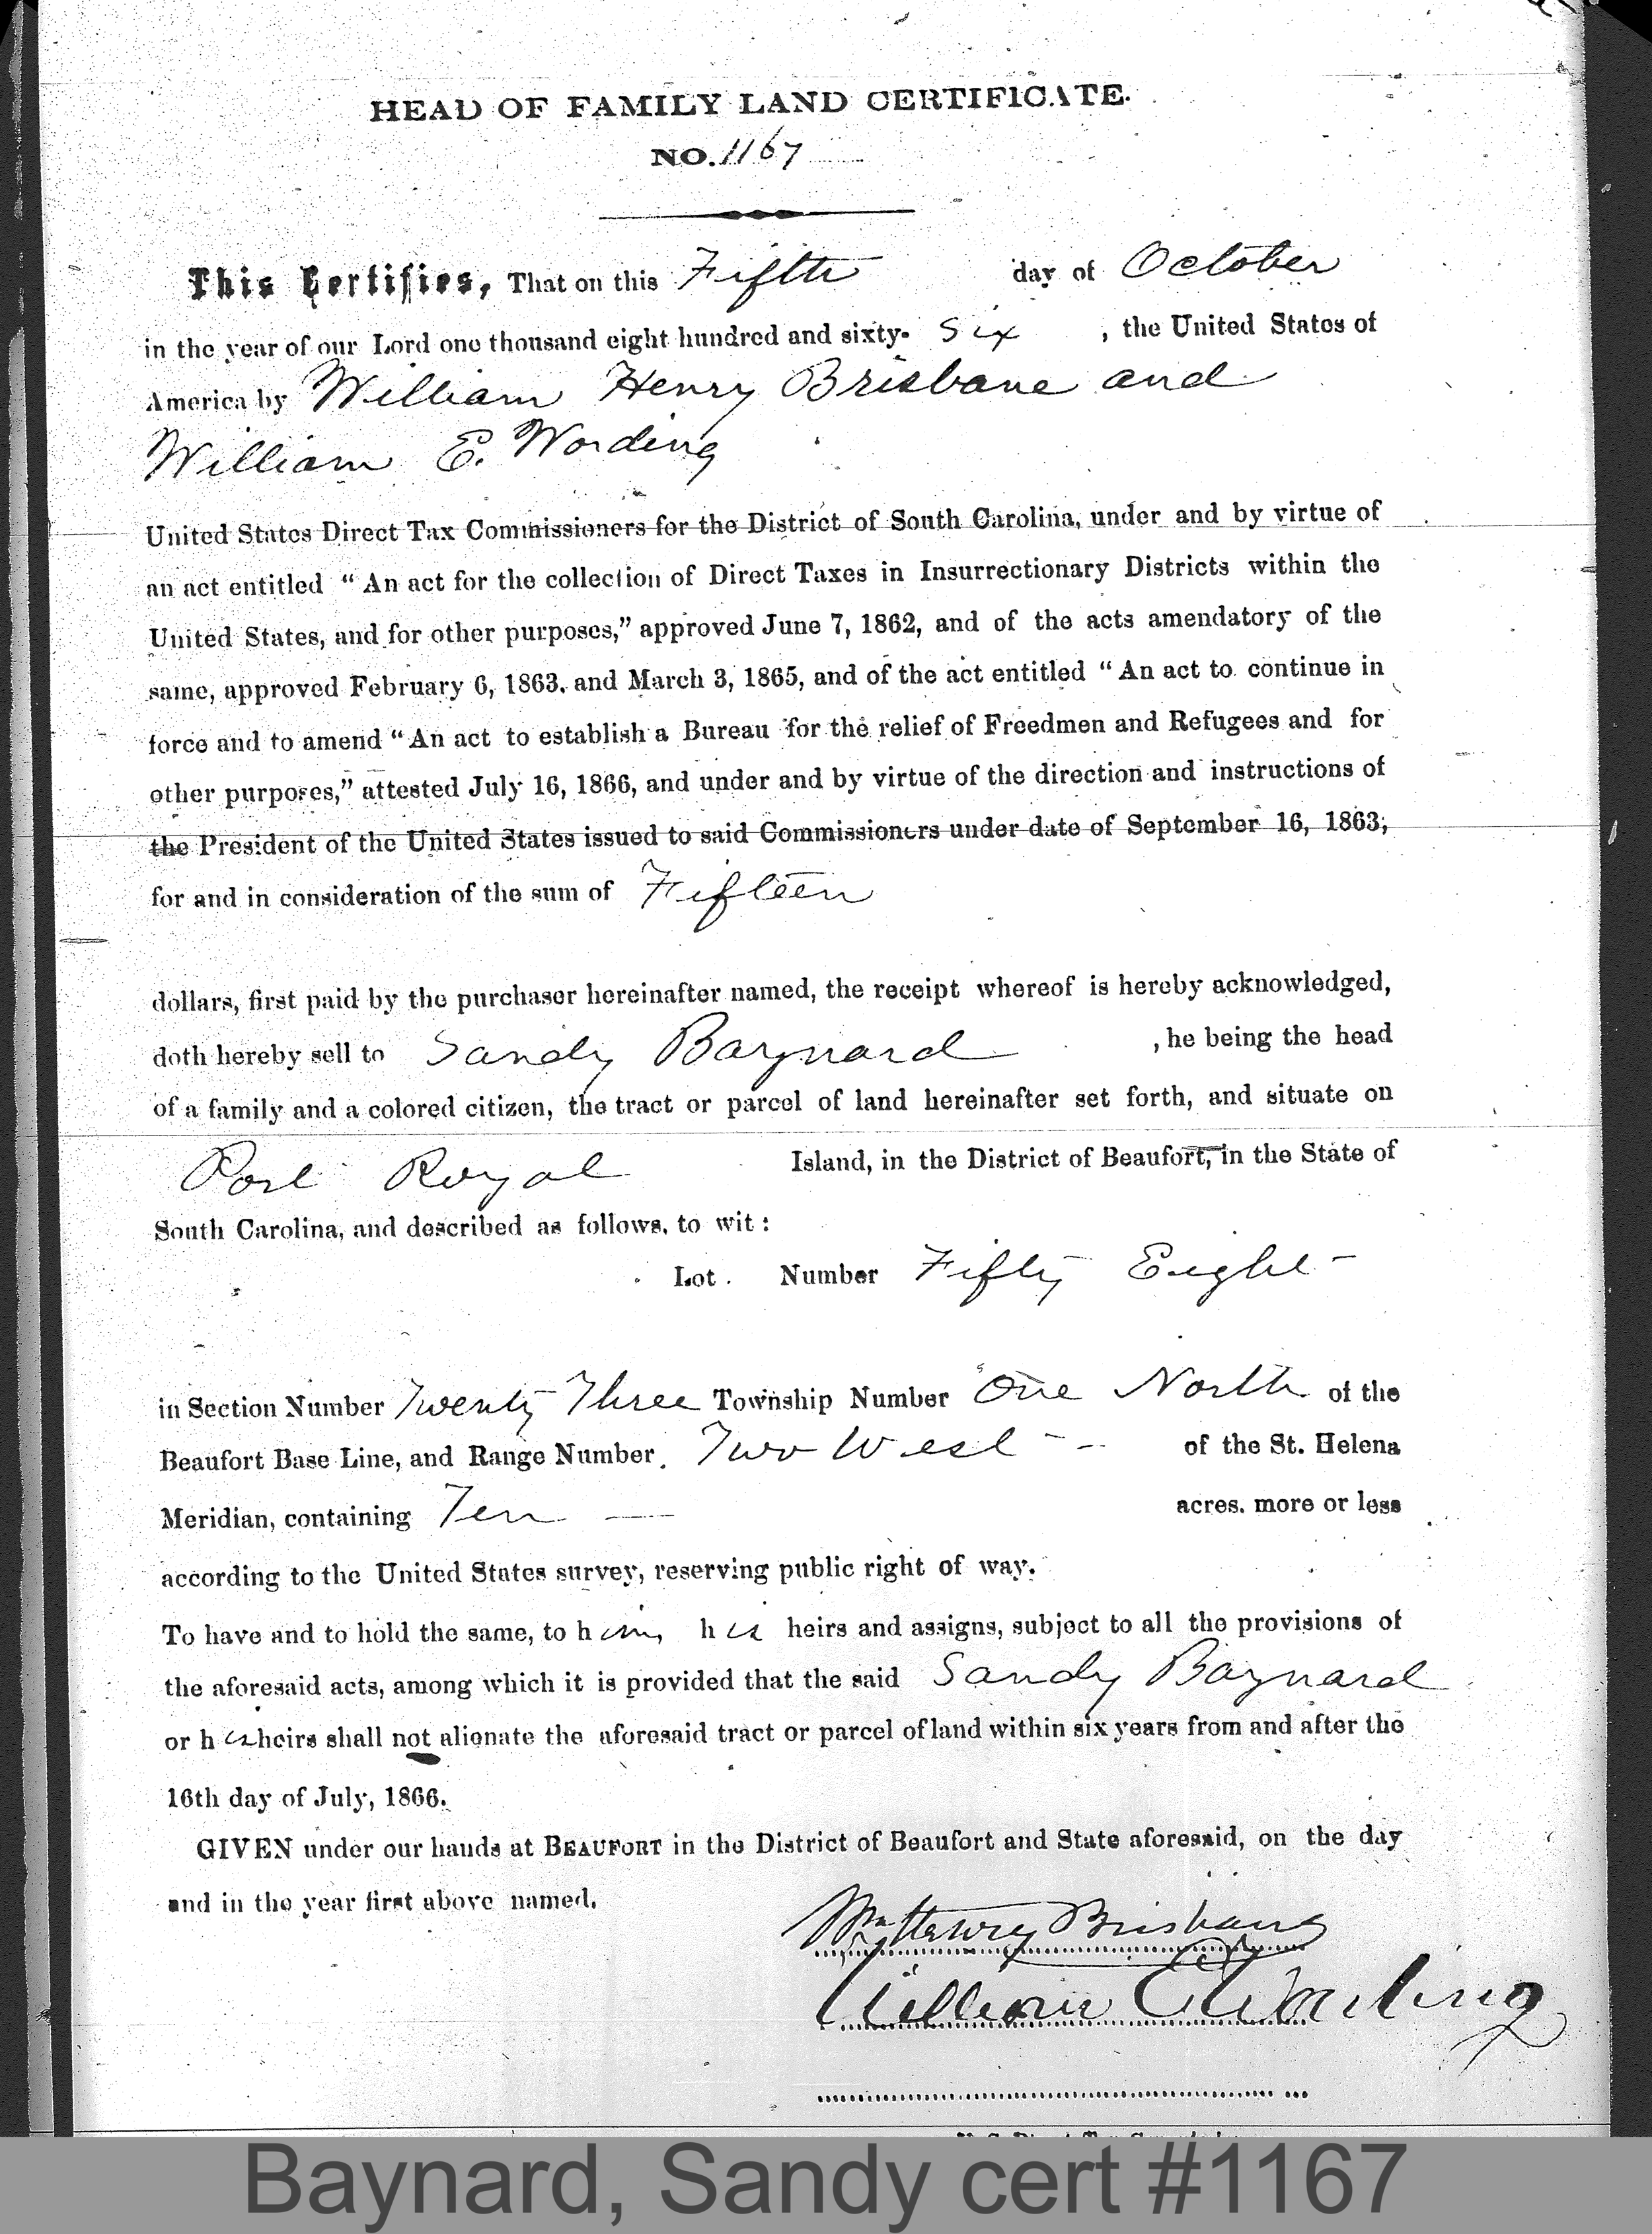 HEAD OF FAMILY LAND CERTIFICATE.
NO. 1167
This Certifies, That on this Fifth day of October
in the year of our Lord one thousand eight hundred and sixty- Six , the United States of
America by William Henry Brisbane and
William E. Wording
United States Direct Tax Commissioners for the District of South Carolina, under and by virtue of
an act entitled “An act for the collection of Direct Taxes in Insurrectionary Districts within the
United States, and for other purposes,” approved June 7, 1862, and of the acts amendatory of the
same, approved February 6, 1863, and March 3, 1865, and of the act entitled “An act to continue in
force and to amend “An act to establish a Bureau for the relief of Freedmen and Refugees and for
other purposes,” attested July 16, 1866, and under and by virtue of the direction and instructions of
the President of the United States issued to said Commissioners under date of September 16, 1863,
for and in consideration of the sum of Fifteen
dollars, first paid by the purchaser hereinafter named, the receipt whereof is hereby acknowledged,
doth hereby sell to Sandy Baynard , he being the head
of a family and a colored citizen, the tract or parcel of land hereinafter set forth, and situate on
Port Royal Island, in the District of Beaufort, in the State of
South Carolina, and described as follows, to wit:
Lot. Number Fifty Eight
in Section Number Twenty Three Township Number One North of the
Beaufort Base Line, and Range Number Two West of the St. Helena
Meridian, containing Ten acres, more or less
according to the United States survey, reserving public right of way.
To have and to hold the same, to him, his heirs and assigns, subject to all the provisions of
the aforesaid acts, among which it is provided that the said Sandy Baynard
or his heirs shall not alienate the aforesaid tract or parcel of land within six years from and after the
16th day of July, 1866.
GIVEN under our hands at BEAUFORT in the District of Beaufort and State aforesaid, on the day
and in the year first above named.
Wm Henry Brisbane
William E. Wording
Baynard, Sandy cert #1167